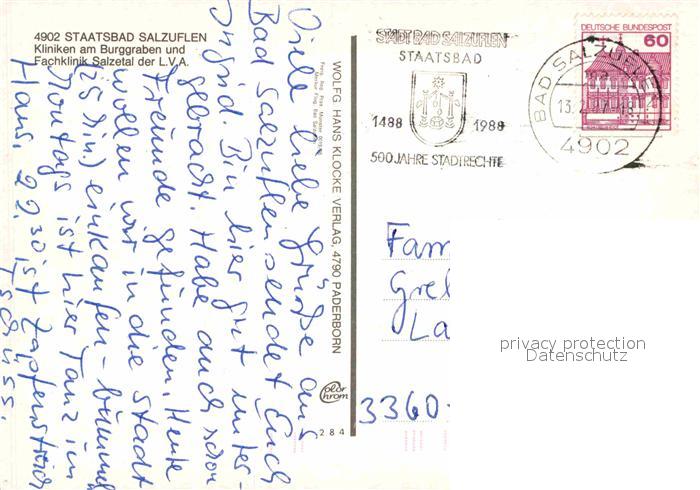 4902 STAATSBAD SALZUFLEN
Kliniken am Burggraben und
Fachklinik Salzetal der L.V.A.
Viele liebe Grüße aus
Bad Salzuflen sendet Euch
Ingrid. Bin hier gut unter-
gebracht. Habe auch schon
Freunde gefunden. Heute
wollen wir in die Stadt
(25 Min.) einkaufen - bummeln
Montags ist hier Tanz im
Haus. 22.30 ist Zapfenstreich
Tschüss.
WOLFG. HANS KLOCKE VERLAG, 4790 PADERBORN
Color
chrom
284
STADT BAD SALZUFLEN
STAATSBAD
1488 1988
500 JAHRE STADTRECHTE
BAD SALZUFLEN
13.2
4902
DEUTSCHE BUNDESPOST
60
Fam
Gre
La
3360
privacy protection
Datenschutz